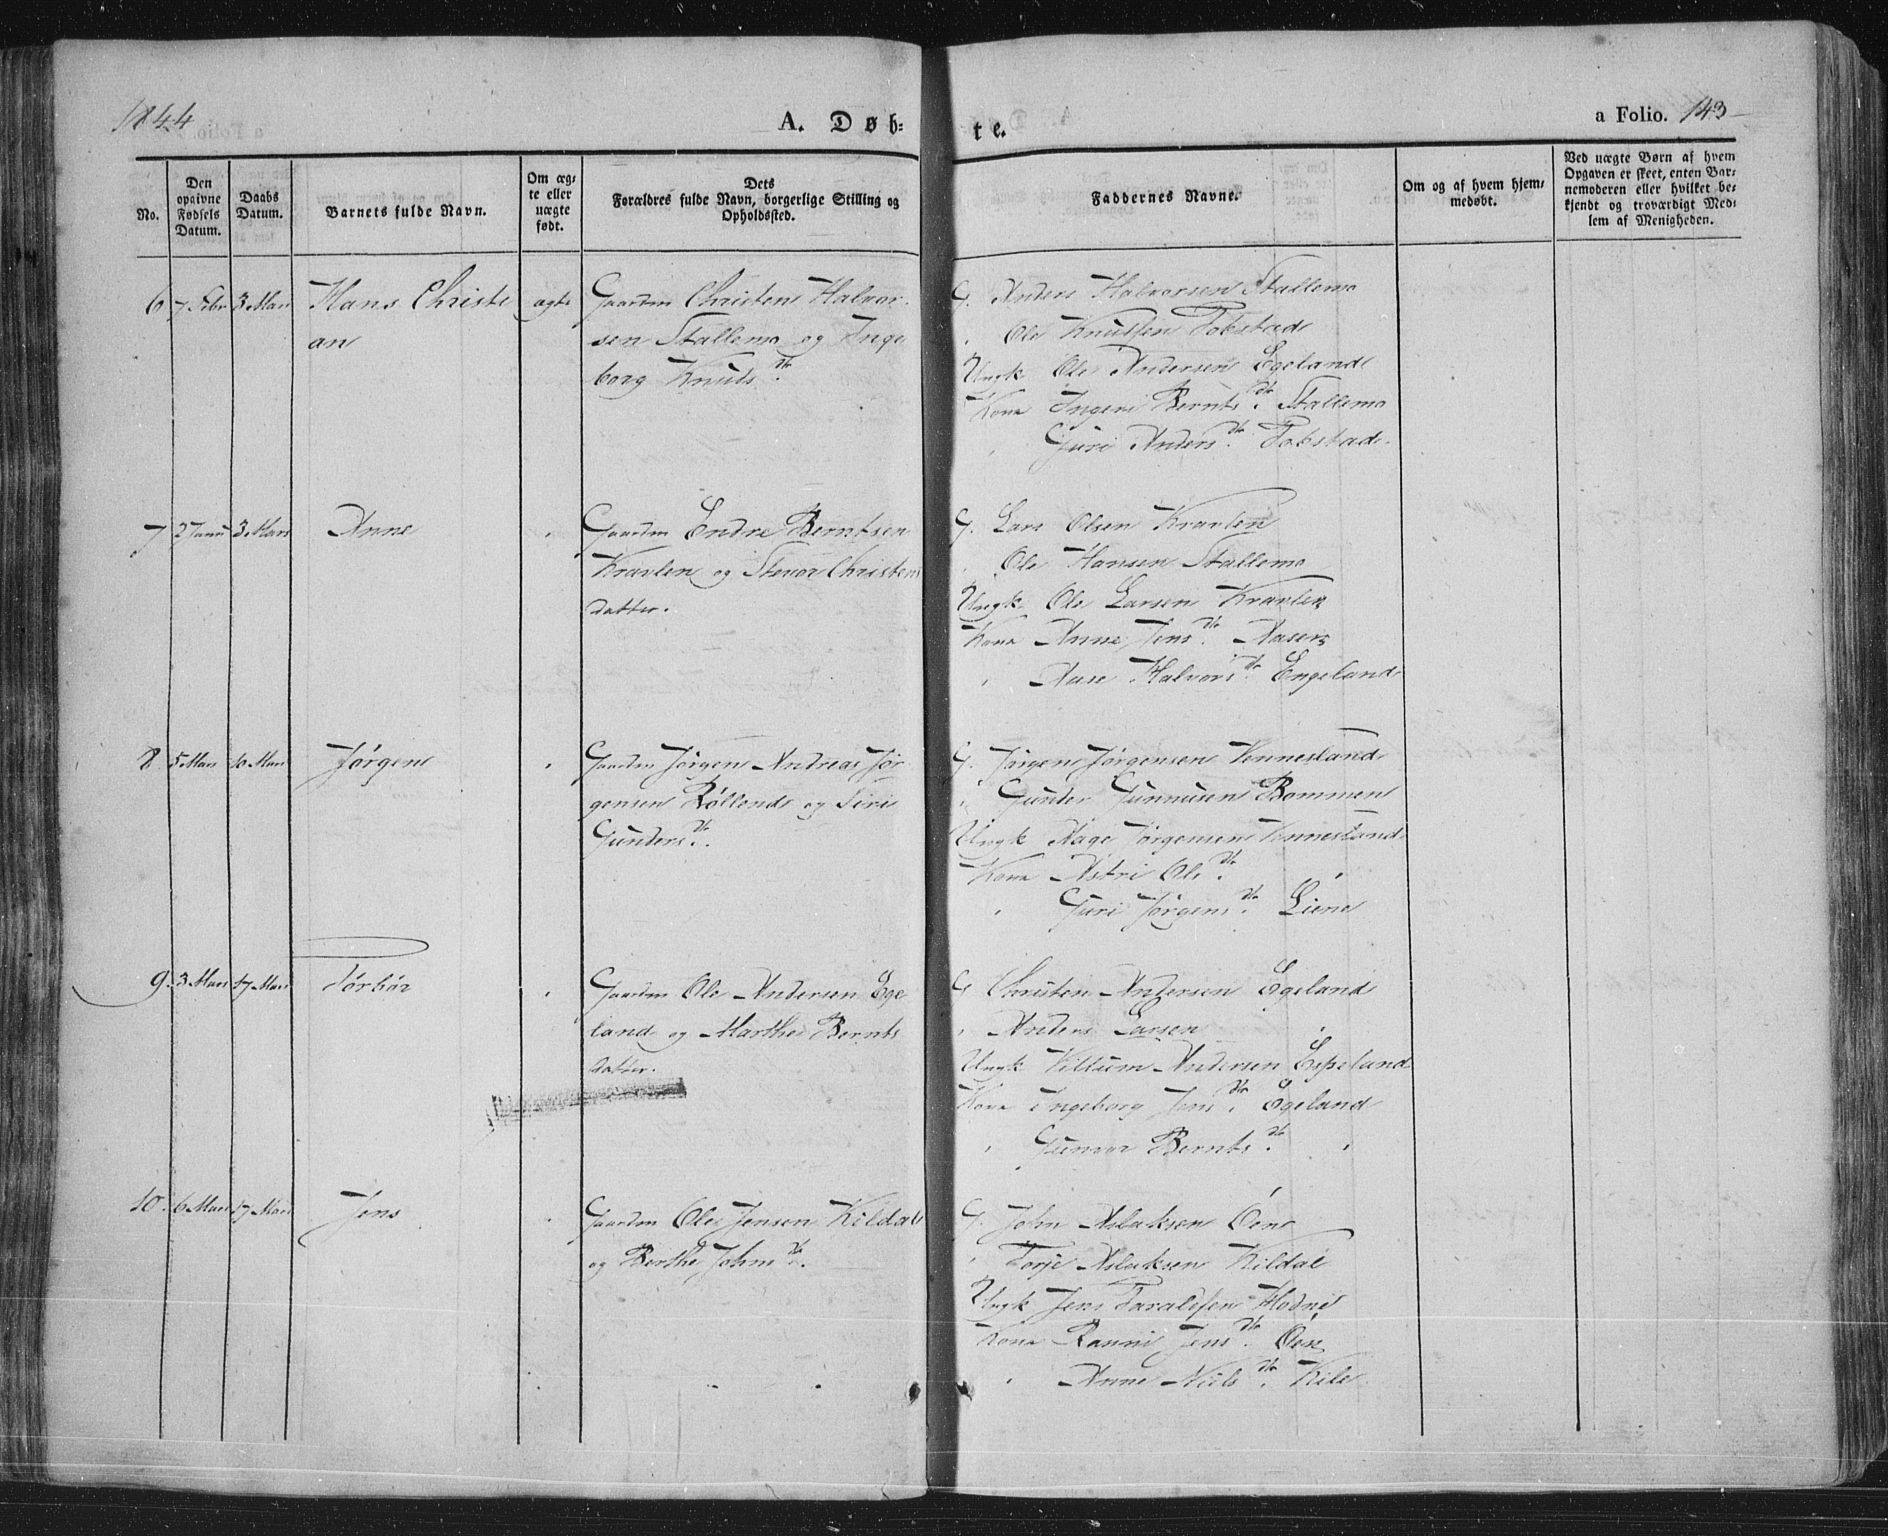 1844
A. Døb-
te.
a Folio. 143
No.
Den opgivne Fødsels Datum.
Daabs Datum.
Barnets fulde Navn.
Om ægte eller uægte født.
Dets Forældres fulde Navn, borgerlige Stilling og Opholdssted.
Faddernes Navne.
Om og af hvem hjemmedøbt.
Ved uægte Børn af hvem Opgaven er skeet, enten Barnemoderen eller hvilket bekjendt og troværdigt Medlem af Menigheden.
6 7 Febr 3 Mars Hans Christi
an
ægte
Gaardm Christen Halvor
sen Stallemo og Inge
borg Knuds dtr.
G. Anders Halvorsen Stallemo
" Ole Knutsen Tobstad
Ungk Ole Andersen Egeland
Kone Ingeri Bernts dtr. Stallemo
" Guri Anders dtr. Tobstad
7 2 Janu 3 Mars Anne "
Gaardm Endre Berntsen
Kravlen og Stenor Christens
datter.
G. Lars Olsen Kravlen
" Ole Hansen Stallemo
Ungk Ole Larsen Kravlen
Kone Anne Jens dtr. Aasen
" Aase Halvors dtr. Engeland
8 5 Mars 10 Mars Jørgen "
Gaardm Jørgen Andreas Jør
gensen Røllend og Siri
Gunders dtr.
G. Jørgen Jørgensen Vennesland
" Gunder Gunnusen Bommen
Ungk Aage Jørgensen Vennesland
Kone Astri Ols dtr. "
" Guri Jørgens dtr. Liene
9 3 Mars 17 Mars Torbør "
Gaardm Ole Andersen Ege
land og Marthe Bernts
datter.
G Christen Andersen Egeland
" Anders Larsen "
Ungk Villum Andersen Espeland
Kone Ingeborg Jens dtr. Egeland
" Gunvor Bernts dtr. "
10. 6 Mars 17 Mars Jens "
Gaardm Ole Jensen Kildal
og Berthe Johns dtr.
G. John Aslaksen Øen
" Torje Aslaksen Kildal
Ungk Jens Taraldsen Hodne
Kone Ranni Jens dtr. Øen
" Anne Niels dtr. Kile